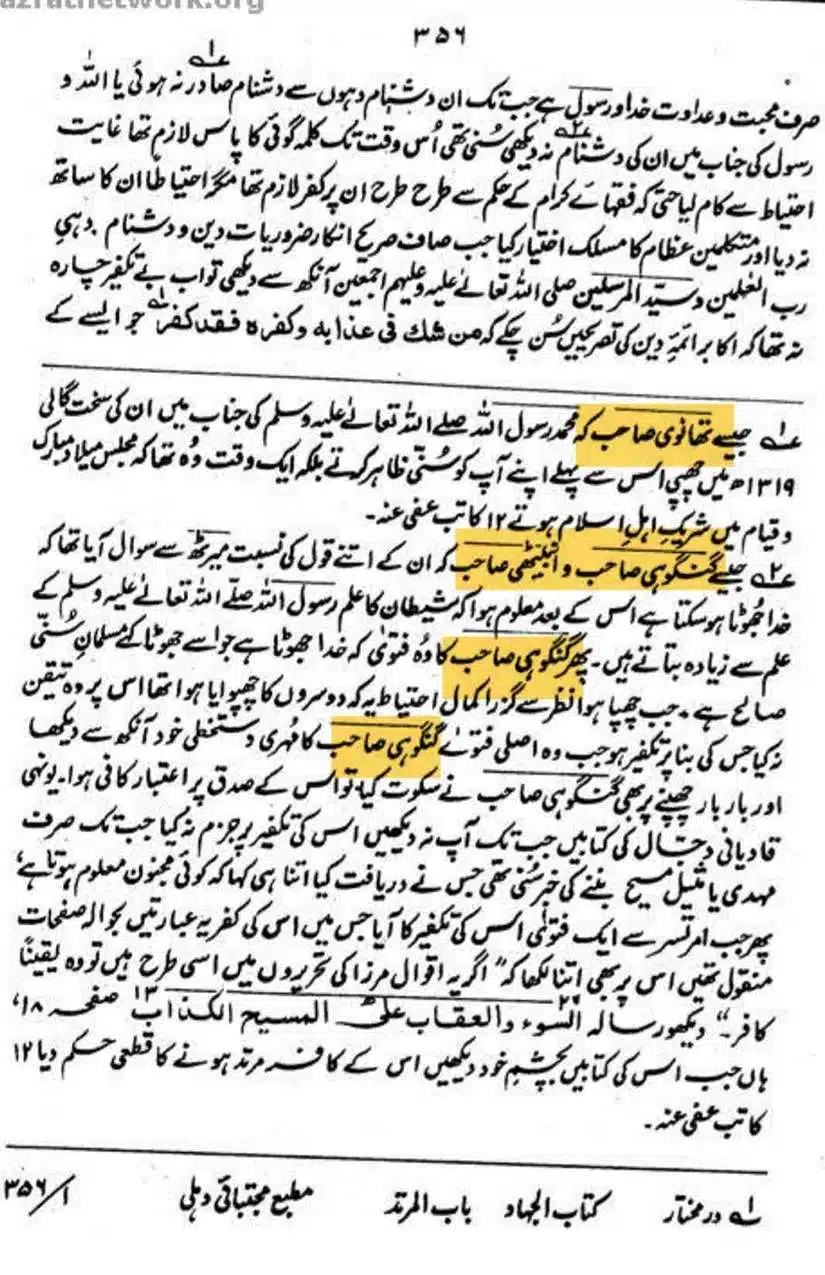 azratnetwork.org
۳۵۶
صرف محبت و عداوت خدا و رسول ہے جب تک ان دشنام دہوں سے دشنام صادر نہ ہوئی یا اللہ و
رسول کی جناب میں ان کی دشنام نہ دیکھی سُنی تھی اُس وقت تک کلمہ گوئی کا پاس لازم تھا غایت
احتیاط سے کام لیا حتی کہ فقہائے کرام کے حکم سے طرح طرح ان پر کفر لازم تھا مگر احتیاطاً ان کا ساتھ
نہ دیا اور متکلمین عظام کا مسلک اختیار کیا جب صاف صریح انکار ضروریات دین و دشنام دہیِ
رب العٰلمین و سیّد المرسلین صلی اللہ تعالٰے علیہ وعلیہم اجمعین آنکھ سے دیکھی تو اب بے تکفیر چارہ
نہ تھا کہ اکابر ائمہ دین کی تصریحیں سُن چکے کہ من شك فی عذابہ و کفرہ فقد کفر لہ جو ایسے کے
عہ۱ جیسے تھانوی صاحب کہ محمد رسول اللہ صلے اللہ تعالٰے علیہ وسلم کی جناب میں ان کی سخت گالی
۱۳۱۹ھ میں چھپی اس سے پہلے اپنے آپ کو سُنّی ظاہر کرتے بلکہ ایک وقت وُہ تھا کہ مجلس میلاد مبارک
و قیام میں شریکِ اہلِ اسلام ہوتے ۱۲ کاتب عفی عنہ۔
عہ۲ جیسے گنگوہی صاحب و انبیٹھی صاحب کہ ان کے اتنے قول کی نسبت میرٹھ سے سوال آیا تھا کہ
خدا جُھوٹا ہوسکتا ہے اس کے بعد معلوم ہوا کہ شیطان کا علم رسول اللہ صلّے اللہ تعالٰے علیہ وسلم کے
علم سے زیادہ بتاتے ہیں۔ پھر گنگوہی صاحب کا وُہ فتوٰی کہ خدا جھوٹا ہے جو اسے جھوٹا کہے مسلمان سُنّی
صالح ہے۔ جب چھپا ہوا نظر سے گزرا کمال احتیاط یہ کہ دوسروں کا چھپوایا ہوا تھا اس پر وہ تیقن
نہ کیا جس کی بنا پر تکفیر ہو جب وہ اصلی فتوٰے گنگوہی صاحب کا مُہری دستخطی خود آنکھ سے دیکھا
اور بار بار چھپنے پر بھی گنگوہی صاحب نے سکوت کیا، تو اس کے صدق پر اعتبار کافی ہوا۔ یونہی
قادیانی دجّال کی کتابیں جب تک آپ نہ دیکھیں اس کی تکفیر پر جزم نہ کیا جب تک صرف
مہدی یا مثیلِ مسیح بننے کی خبر سُنی تھی جس نے دریافت کیا اتنا ہی کہا کہ کوئی مجنون معلوم ہوتا ہے،
پھر جب امرتسر سے ایک فتوٰی اس کی تکفیر کا آیا جس میں اس کی کفریہ عبارتیں بحوالہ صفحات
منقول تھیں اس پر بھی اتنا لکھا کہ "اگر یہ اقوال مرزا کی تحریروں میں اسی طرح ہیں تو وہ یقیناً
کافر۔" دیکھو رسالہ السُّوء والعقاب علیٰ المسیح الکذاب ۱۳۲۰ صفحہ ۱۸،
ہاں جب اس کی کتابیں بچشمِ خود دیکھیں اس کے کافر مرتد ہونے کا قطعی حکم دیا ۱۲
کاتب عفی عنہ۔
لہ در مختار کتاب الجہاد باب المرتد مطبع مجتبائی دہلی ۱/ ۳۵۶